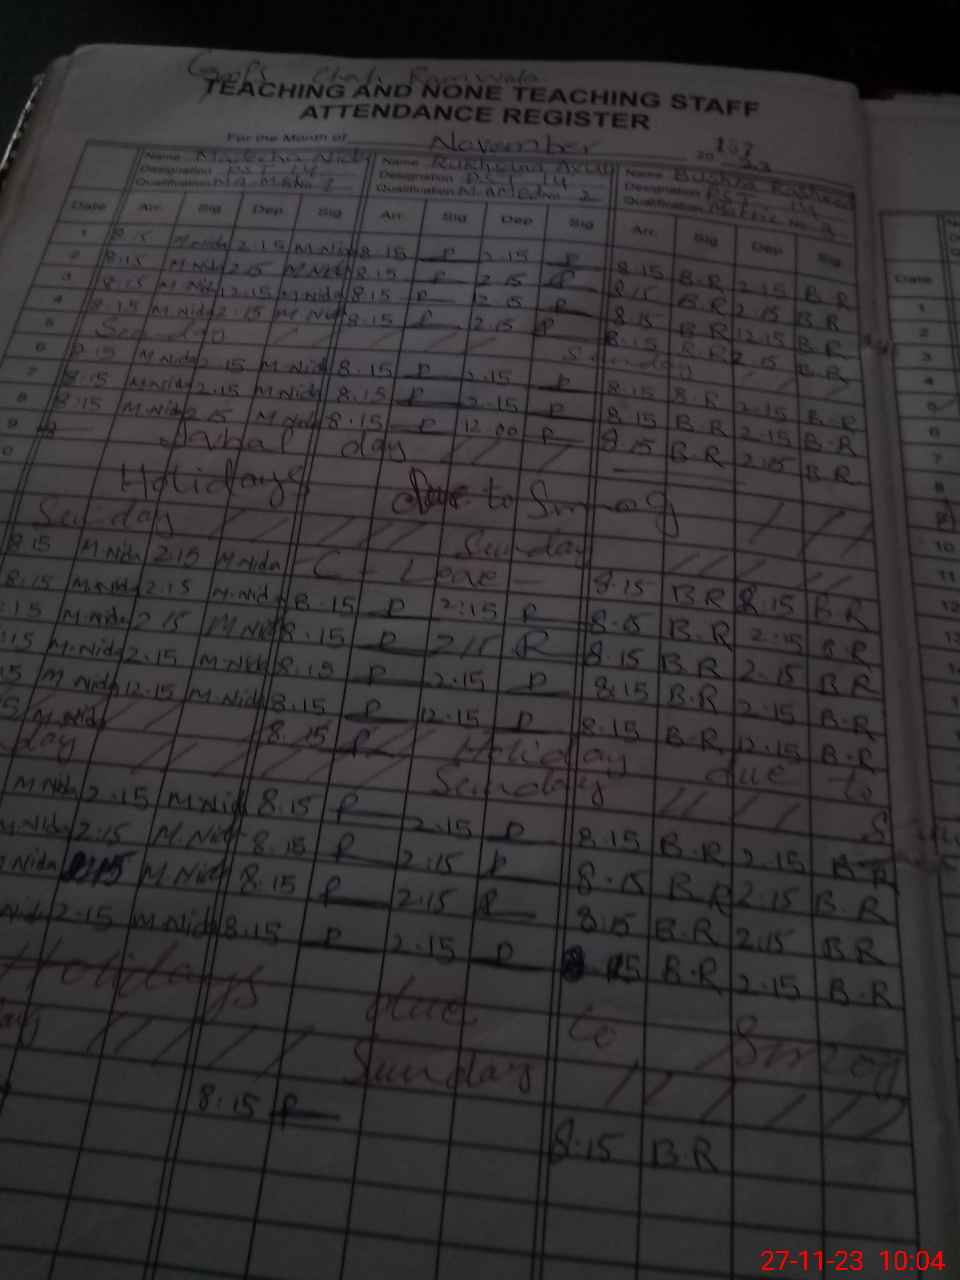 TEACHING AND NONE TEACHING STAFF
ATTENDANCE REGISTER
For the Month of November 20 23
Name Name Rukhsana Name Bushra
Designation Designation Designation
Qualification Qualification Qualification
Date Arr. Sig Dep. Sig Arr. Sig Dep Sig Arr. Sig Dep Sig
1 8.15 M.Nida 2.15 M.Nida 8.15 P 2.15 P 8.15 B.R 2.15 B.R
2 8.15 M.Nida 2.15 M.Nida 8.15 P 2.15 P 8.15 B.R 2.15 B.R
3 8.15 M.Nida 12.15 M.Nida 8.15 P 12.15 P 8.15 B.R 12.15 B.R
4 8.15 M.Nida 2.15 M.Nida 8.15 P 2.15 P 8.15 B.R 2.15 B.R
5 Sunday Sunday
6 8.15 M.Nida 2.15 M.Nida 8.15 P 2.15 P 8.15 B.R 2.15 B.R
7 8.15 M.Nida 2.15 M.Nida 8.15 P 2.15 P 8.15 B.R 2.15 B.R
8 8.15 M.Nida 2.15 M.Nida 8.15 P 12.00 P 8.15 B.R 2.15 B.R
9 day
Holidays Due to Smog
Sunday Sunday
8.15 M.Nida 2.15 M.Nida C - Leave 8.15 B.R 8.15 B.R
8.15 M.Nida 2.15 M.Nida 8.15 P 2:15 P 8.15 B.R 2.15 B.R
:15 M.Nida 2.15 M.Nida 8.15 P 2.15 R 8.15 B.R 2.15 B.R
:15 M.Nida 2.15 M.Nida 8.15 P 2.15 P 8.15 B.R 2.15 B.R
15 M.Nida 12.15 M.Nida 8.15 P 12.15 P 8.15 B.R 12.15 B.R
M.Nida 8.15 P Holiday due to S
day Sunday
M.Nida 2.15 M.Nida 8.15 P 2.15 P 8.15 B.R 2.15 B.R
M.Nida 2:15 M.Nida 8.15 P 2.15 P 8.15 B.R 2.15 B.R
Nida M.Nida 8.15 P 2.15 P 8.15 B.R 2.15 B.R
Nida 2.15 M.Nida 8.15 P 2.15 P 8.15 B.R 2.15 B.R
Holidays due to Smog
Sunday
8.15 P 8.15 B.R
Date
1
2
3
4
5
6
7
8
9
10
11
27-11-23 10:04